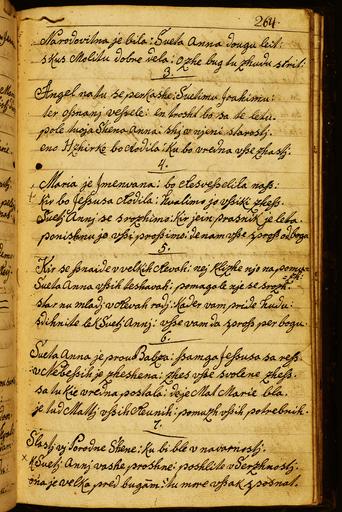 264.
Narodovitna je bila: Sveta Anna dougu leit:
skus Molitu dobre dela: Ozhe bug tu zhudu sturit:
3.
Angel na tu se perkashe: Svetimu Joakimu:
ter osnani vessele: en trosht bo sa te letu.
pole tvoja Shena Anna: shje v njeni starosti.
eno Hzhirke bo rodila: ku bo vredna vsse zhasti.
4.
Maria je Jmenvana: bo resvesselila nass:
Kir bo Jessusa rodila: hvalimo jo vssiki zhess.
Sveti Annj se srozhimo: Kir jein prasnik je leta
ponishnu jo vssi prossimo: de nam vsse sprossi od boga
5.
Kir se snaide v velkih revah: nej klizhe njo na pomuzh
Sveta Anna vsseh teshavah: pomagale nje se srozh
star nu mladi v revah radj: kader vam pride hudu:
sdihnite k Sveti Annj: vsse vam da sprossi per bogu
6.
Sveta Anna je prova Babza: samga Jessusa sa ress
v Nebessih je zheshena: zhes vsse svolene zhess.
sa tu kir vredna postala: de je Mat Marie bla.
je tud Mati vssih revnih: pomuzh vssih potrebnih.
7.
Slasti vj Porodne Shene: Ku bi ble v navarnosti.
k Sveti Annj vashe proshne: poshlite v Serzhnosti.
ona je velka pred bugam: tu more vssak sposnat.